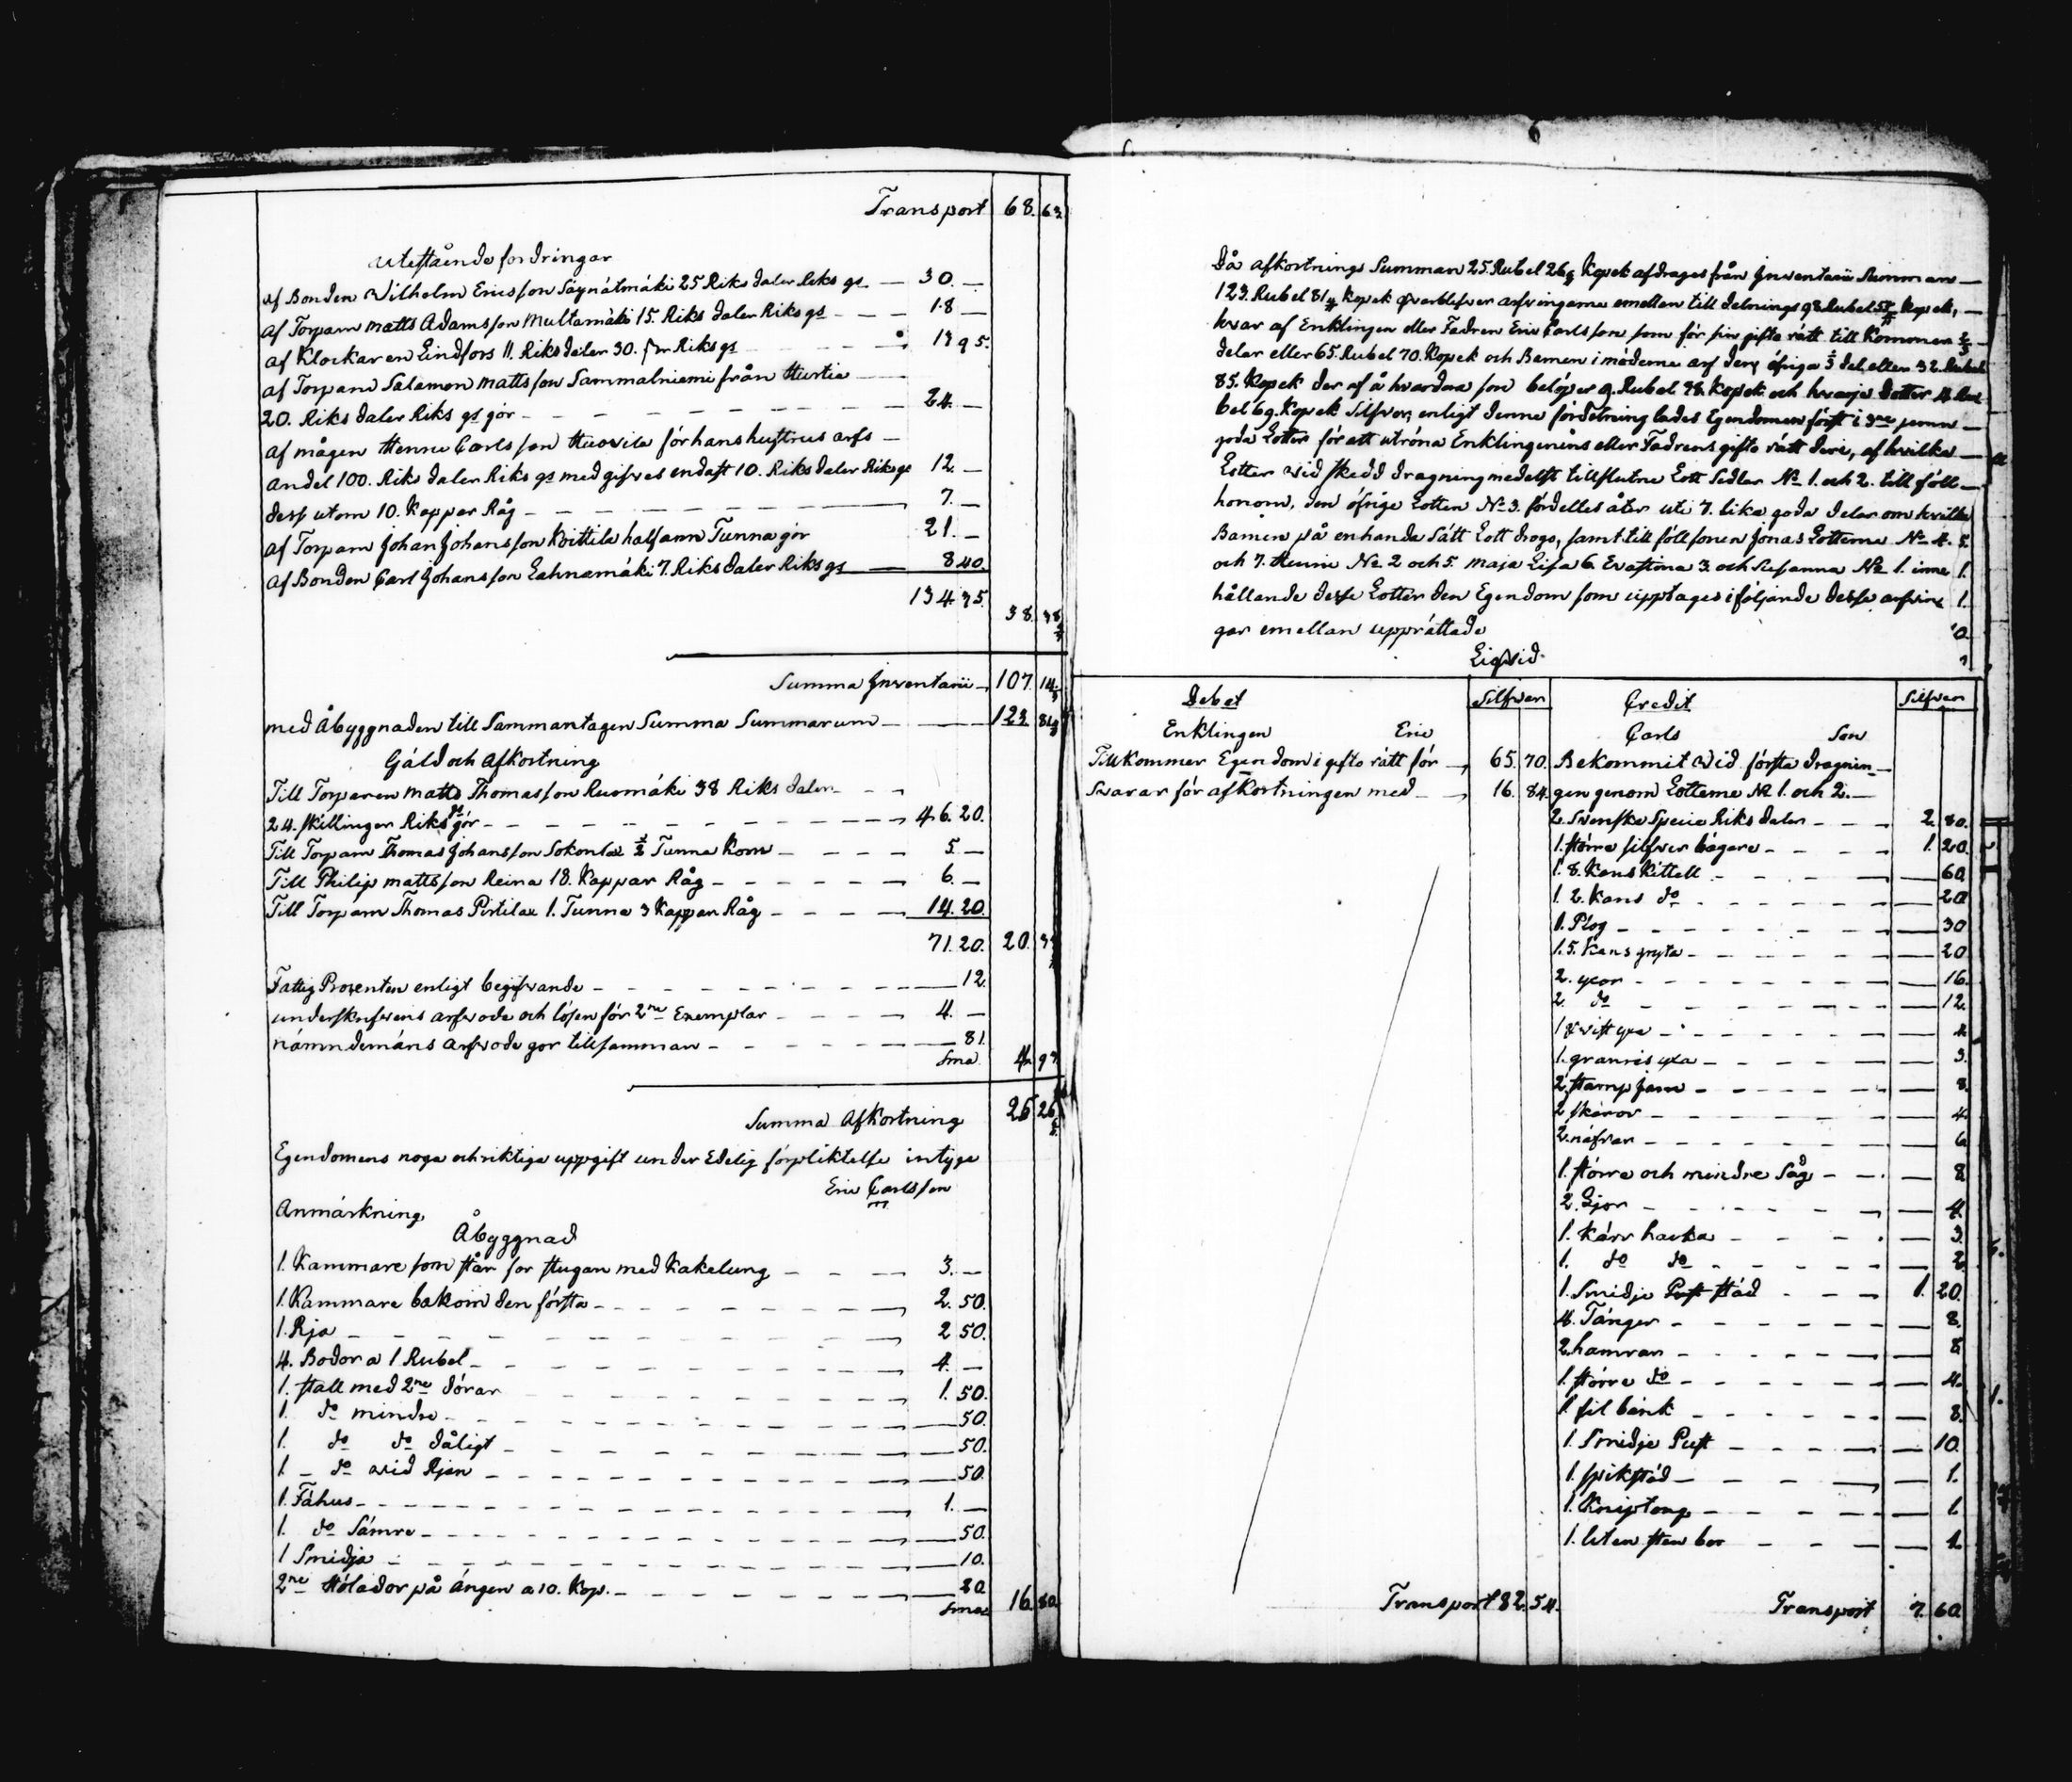 Transport 68. 63.
Utestående fordringar
af Bonden Wilhelm Ericsson Säynätmäki 25 Riksdaler Riks gs — 30. —
af Torparn Matts Adamsson Multamäki 15. Riksdaler Riks gs — 18 —
af Klockaren Lindfors 11. Riksdaler 30. sr Riks gs — 13 95.
af Torparn Salomon Mattsson Sammalniemi från Hurtia —
20. Riksdaler Riks gs gör — 24. —
af mågen Henric Carlsson Huovila för hans hustrus arfs —
andel 100. Riksdaler Riks gs medgifves endast 10. Riksdaler Riksgs 12. —
dess utom 10. Kappar Råg — 7. —
af Torparn Johan Johansson Kvittila half ann Tunna gör 21. —
af Bonden Carl Johansson Lahnamäki 7. Riksdaler Riks gs — 8 40.
134. 35. 38. 38
Summa Inventarii — 107. 14
med Åbyggnaden till Sammantagen Summa Summarum — 123. 81
Gäld och Afkortning
Till Torparen Matts Thomasson Ruomäki 38 Riksdaler —
24. skillingar Riks gs gör — 46. 20.
Till Torparn Thomas Johansson Sokonla ½ Tunna Korn — 5. —
Till Philip Mattsson Reina 18. Kappar Råg — 6. —
Till Torparn Thomas Pirtila 1. Tunna 3 Kappar Råg — 14. 20.
71. 20. 20. 34
Fattig Prosenten enligt begifvande — 12.
underskrifvens arfvode och lösen för 2ne Exemplar — 4. —
nämndemäns arfvode gör tillsamman — 81.
Sma 4. 93
Summa Afkortning 25 26
Egendomens noga och riktiga uppgift under Edelig förpliktelse intyga
Eric Carlsson
Anmärkning
Åbyggnad
1. Kammare som står for stugan med Kakelung — 3. —
1. Kammare bakom den första — 2. 50.
1. Rja — 2 50.
4. Bodor a 1 Rubel — 4. —
1. stall med 2ne dörar 1. 50.
1. do mindre — 50.
1. do do dåligt — 50.
1. do vid Rjan — 50.
1. Fähus — 1. —
1. do Sämre — 50.
1 Smidja — 10.
2ne Hölador på ängen a 10. Kop. — 20.
Sma 16. 80.
Då Afkortnings Summan 25. Rubel 26 Kopek afdrages från Inventarii Summan —
123. Rubel 81 Kopek qvarblifver arfvingarne emellan till delning 98 Rubel 55 Kopek, —
hvar af Enklingen eller Fadren Eric Carlsson som för sin gifto rätt till Kommer ⅔
delar eller 65. Rubel 70. Kopek och Barnen i möderne arf den öfriga ⅓ del eller 32. Rubel
85. Kopek der af å hvardera son belöper 9. Rubel 38 Kopek och hvarje Dotter 4. Ru
bel 69. Kopek Silfver, enligt denne fördelning lades Egendomen först i 3ne jemn —
goda Lotter för att utröna Enklingenens eller Fadrens gifto rätt deri, af hvilka —
Lotter vid skedd dragning medelst tillslutne Lott Sedlar No 1. och 2. till föll —
honom, den öfrige Lotten No 3. fördeltes åter uti 7. lika goda delar om hvilka
Barnen på enhanda sätt Lott drogo, samt tillföll sonen Jonas Lotterne No 4. 5.
och 7. Henric No 2 och 5. Maja Lisa 6. Evastina 3. och Susanna No 1. inne
hållande desse Lotter den Egendom som upptages i följande desse arfvin
gar emellan upprättade
Liqvid
Debet Silfver Credit Silfver
Enklingen Eric Carls Son
Tillkommer Egendom i gifto rätt för — 65. 70. Bekommit vid första dragnin —
Svarar för afkortningen med — 16. 84. gen genom Lotterne No 1. och 2. —
2. Svenska Specie Riksdaler — 2. 80.
1. större silfver bägare — 1. 20.
1. 8. Kans Kittell — 60
1. 2. Kans do — 20
1. Plog — 30
1. 5. Kans gryta — 20
2. yxor — 16.
2. do — 12.
1 kvist yxa — 4
1. granris yxa — 3.
2. stamp jarn — 8.
2 skäror — 4.
2. näfvar — 6
1. större och mindre Såg — 8
2. Ljor — 4.
1. Kärr hacka — 3.
1. do do — 2.
1. Smidje städ — 1. 20.
4. Tänger — 8.
2. hamrar — 8
1. större do — 4.
1. fil bänk — 8.
1. Smidje Pust — 10.
1. spikstäd — 1.
1. Kniptong — 1.
1. liten sten bor — 1.
Transport 82. 54. Transport 7. 60.